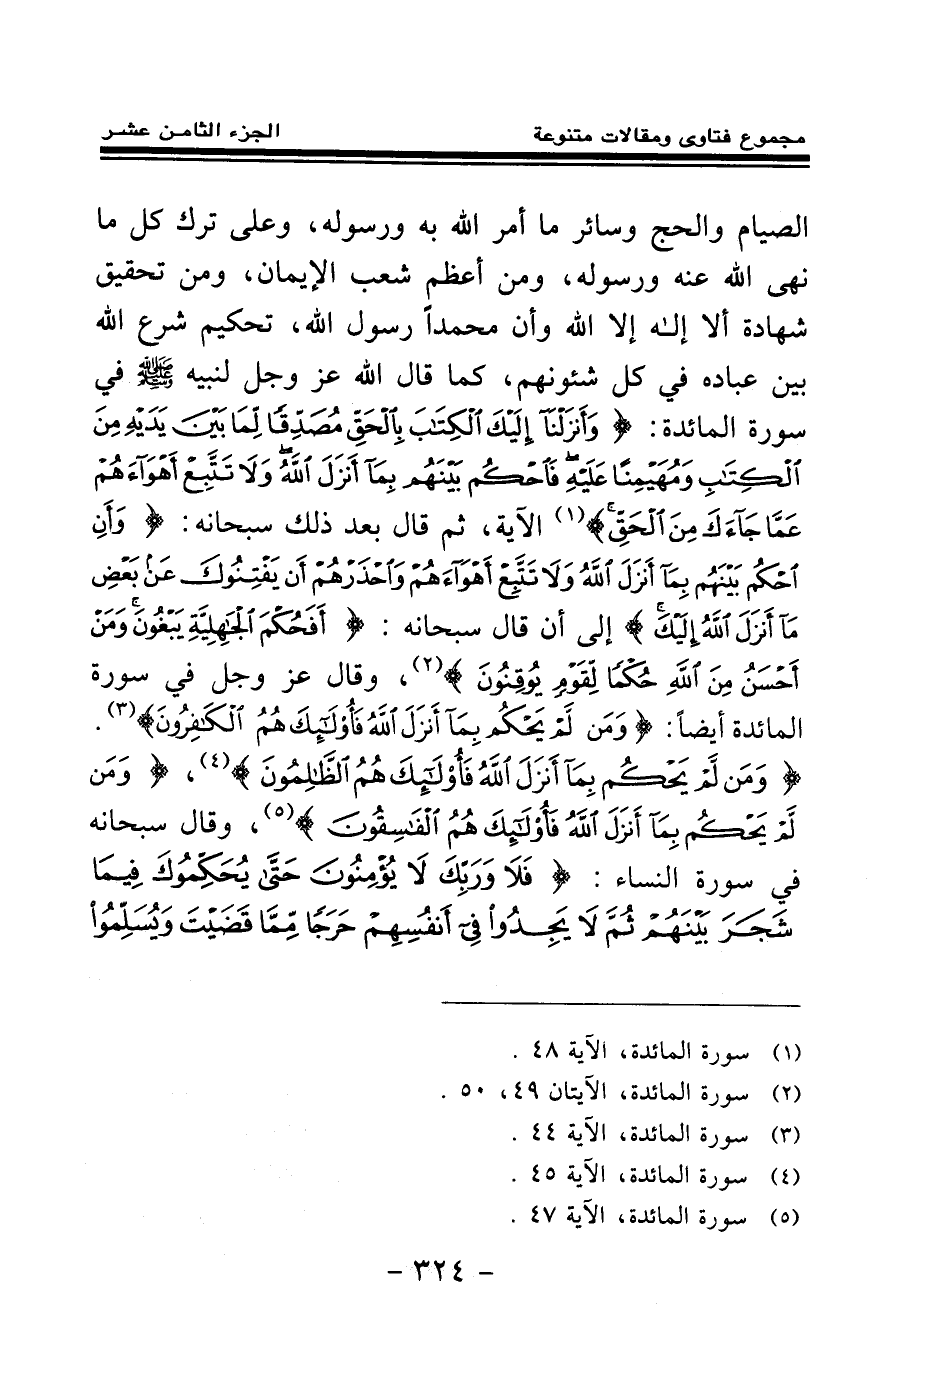 مجموع فتاوى ومقالات متنوعة الجزء الثامن عشر
الصيام والحج وسائر ما أمر الله به ورسوله، وعلى ترك كل ما
نهى الله عنه ورسوله، ومن أعظم شعب الإيمان، ومن تحقيق
شهادة ألا إلـٰه إلا الله وأن محمداً رسول الله، تحكيم شرع الله
بين عباده في كل شئونهم، كما قال الله عز وجل لنبيه ﷺ في
سورة المائدة: ﴿ وَأَنزَلْنَآ إِلَيْكَ ٱلْكِتَٰبَ بِٱلْحَقِّ مُصَدِّقًا لِّمَا بَيْنَ يَدَيْهِ مِنَ
ٱلْكِتَٰبِ وَمُهَيْمِنًا عَلَيْهِ ۖ فَٱحْكُم بَيْنَهُم بِمَآ أَنزَلَ ٱللَّهُ ۖ وَلَا تَتَّبِعْ أَهْوَآءَهُمْ
عَمَّا جَآءَكَ مِنَ ٱلْحَقِّ ۚ ﴾(١) الآية، ثم قال بعد ذلك سبحانه: ﴿ وَأَنِ
ٱحْكُم بَيْنَهُم بِمَآ أَنزَلَ ٱللَّهُ وَلَا تَتَّبِعْ أَهْوَآءَهُمْ وَٱحْذَرْهُمْ أَن يَفْتِنُوكَ عَنۢ بَعْضِ
مَآ أَنزَلَ ٱللَّهُ إِلَيْكَ ۖ ﴾ إلى أن قال سبحانه : ﴿ أَفَحُكْمَ ٱلْجَٰهِلِيَّةِ يَبْغُونَ ۚ وَمَنْ
أَحْسَنُ مِنَ ٱللَّهِ حُكْمًا لِّقَوْمٍ يُوقِنُونَ ﴾(٢)، وقال عز وجل في سورة
المائدة أيضاً: ﴿ وَمَن لَّمْ يَحْكُم بِمَآ أَنزَلَ ٱللَّهُ فَأُو۟لَٰٓئِكَ هُمُ ٱلْكَٰفِرُونَ ﴾(٣).
﴿ وَمَن لَّمْ يَحْكُم بِمَآ أَنزَلَ ٱللَّهُ فَأُو۟لَٰٓئِكَ هُمُ ٱلظَّٰلِمُونَ ﴾(٤)، ﴿ وَمَن
لَّمْ يَحْكُم بِمَآ أَنزَلَ ٱللَّهُ فَأُو۟لَٰٓئِكَ هُمُ ٱلْفَٰسِقُونَ ﴾(٥)، وقال سبحانه
في سورة النساء : ﴿ فَلَا وَرَبِّكَ لَا يُؤْمِنُونَ حَتَّىٰ يُحَكِّمُوكَ فِيمَا
شَجَرَ بَيْنَهُمْ ثُمَّ لَا يَجِدُوا۟ فِىٓ أَنفُسِهِمْ حَرَجًا مِّمَّا قَضَيْتَ وَيُسَلِّمُوا۟
(١) سورة المائدة، الآية ٤٨ .
(٢) سورة المائدة، الآيتان ٤٩، ٥٠ .
(٣) سورة المائدة، الآية ٤٤ .
(٤) سورة المائدة، الآية ٤٥ .
(٥) سورة المائدة، الآية ٤٧ .
- ٣٢٤ -